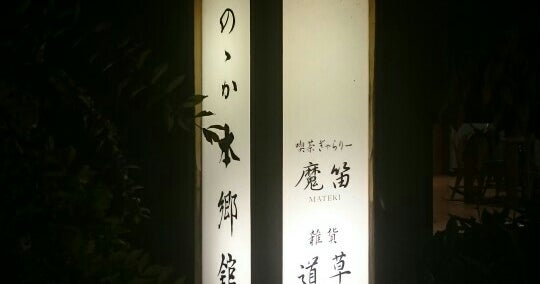 のゝか本郷館
喫茶ぎゃらりー
魔笛
MATEKI
雑貨
道草